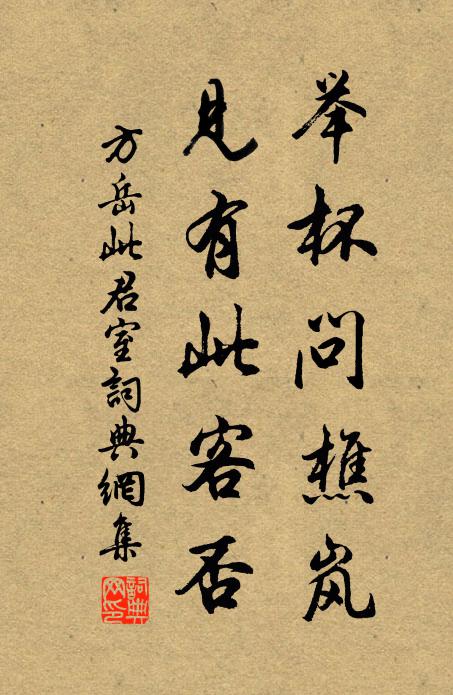 举杯问樵岚
见有此客否
方岳此君室詞典網集
詞典网印